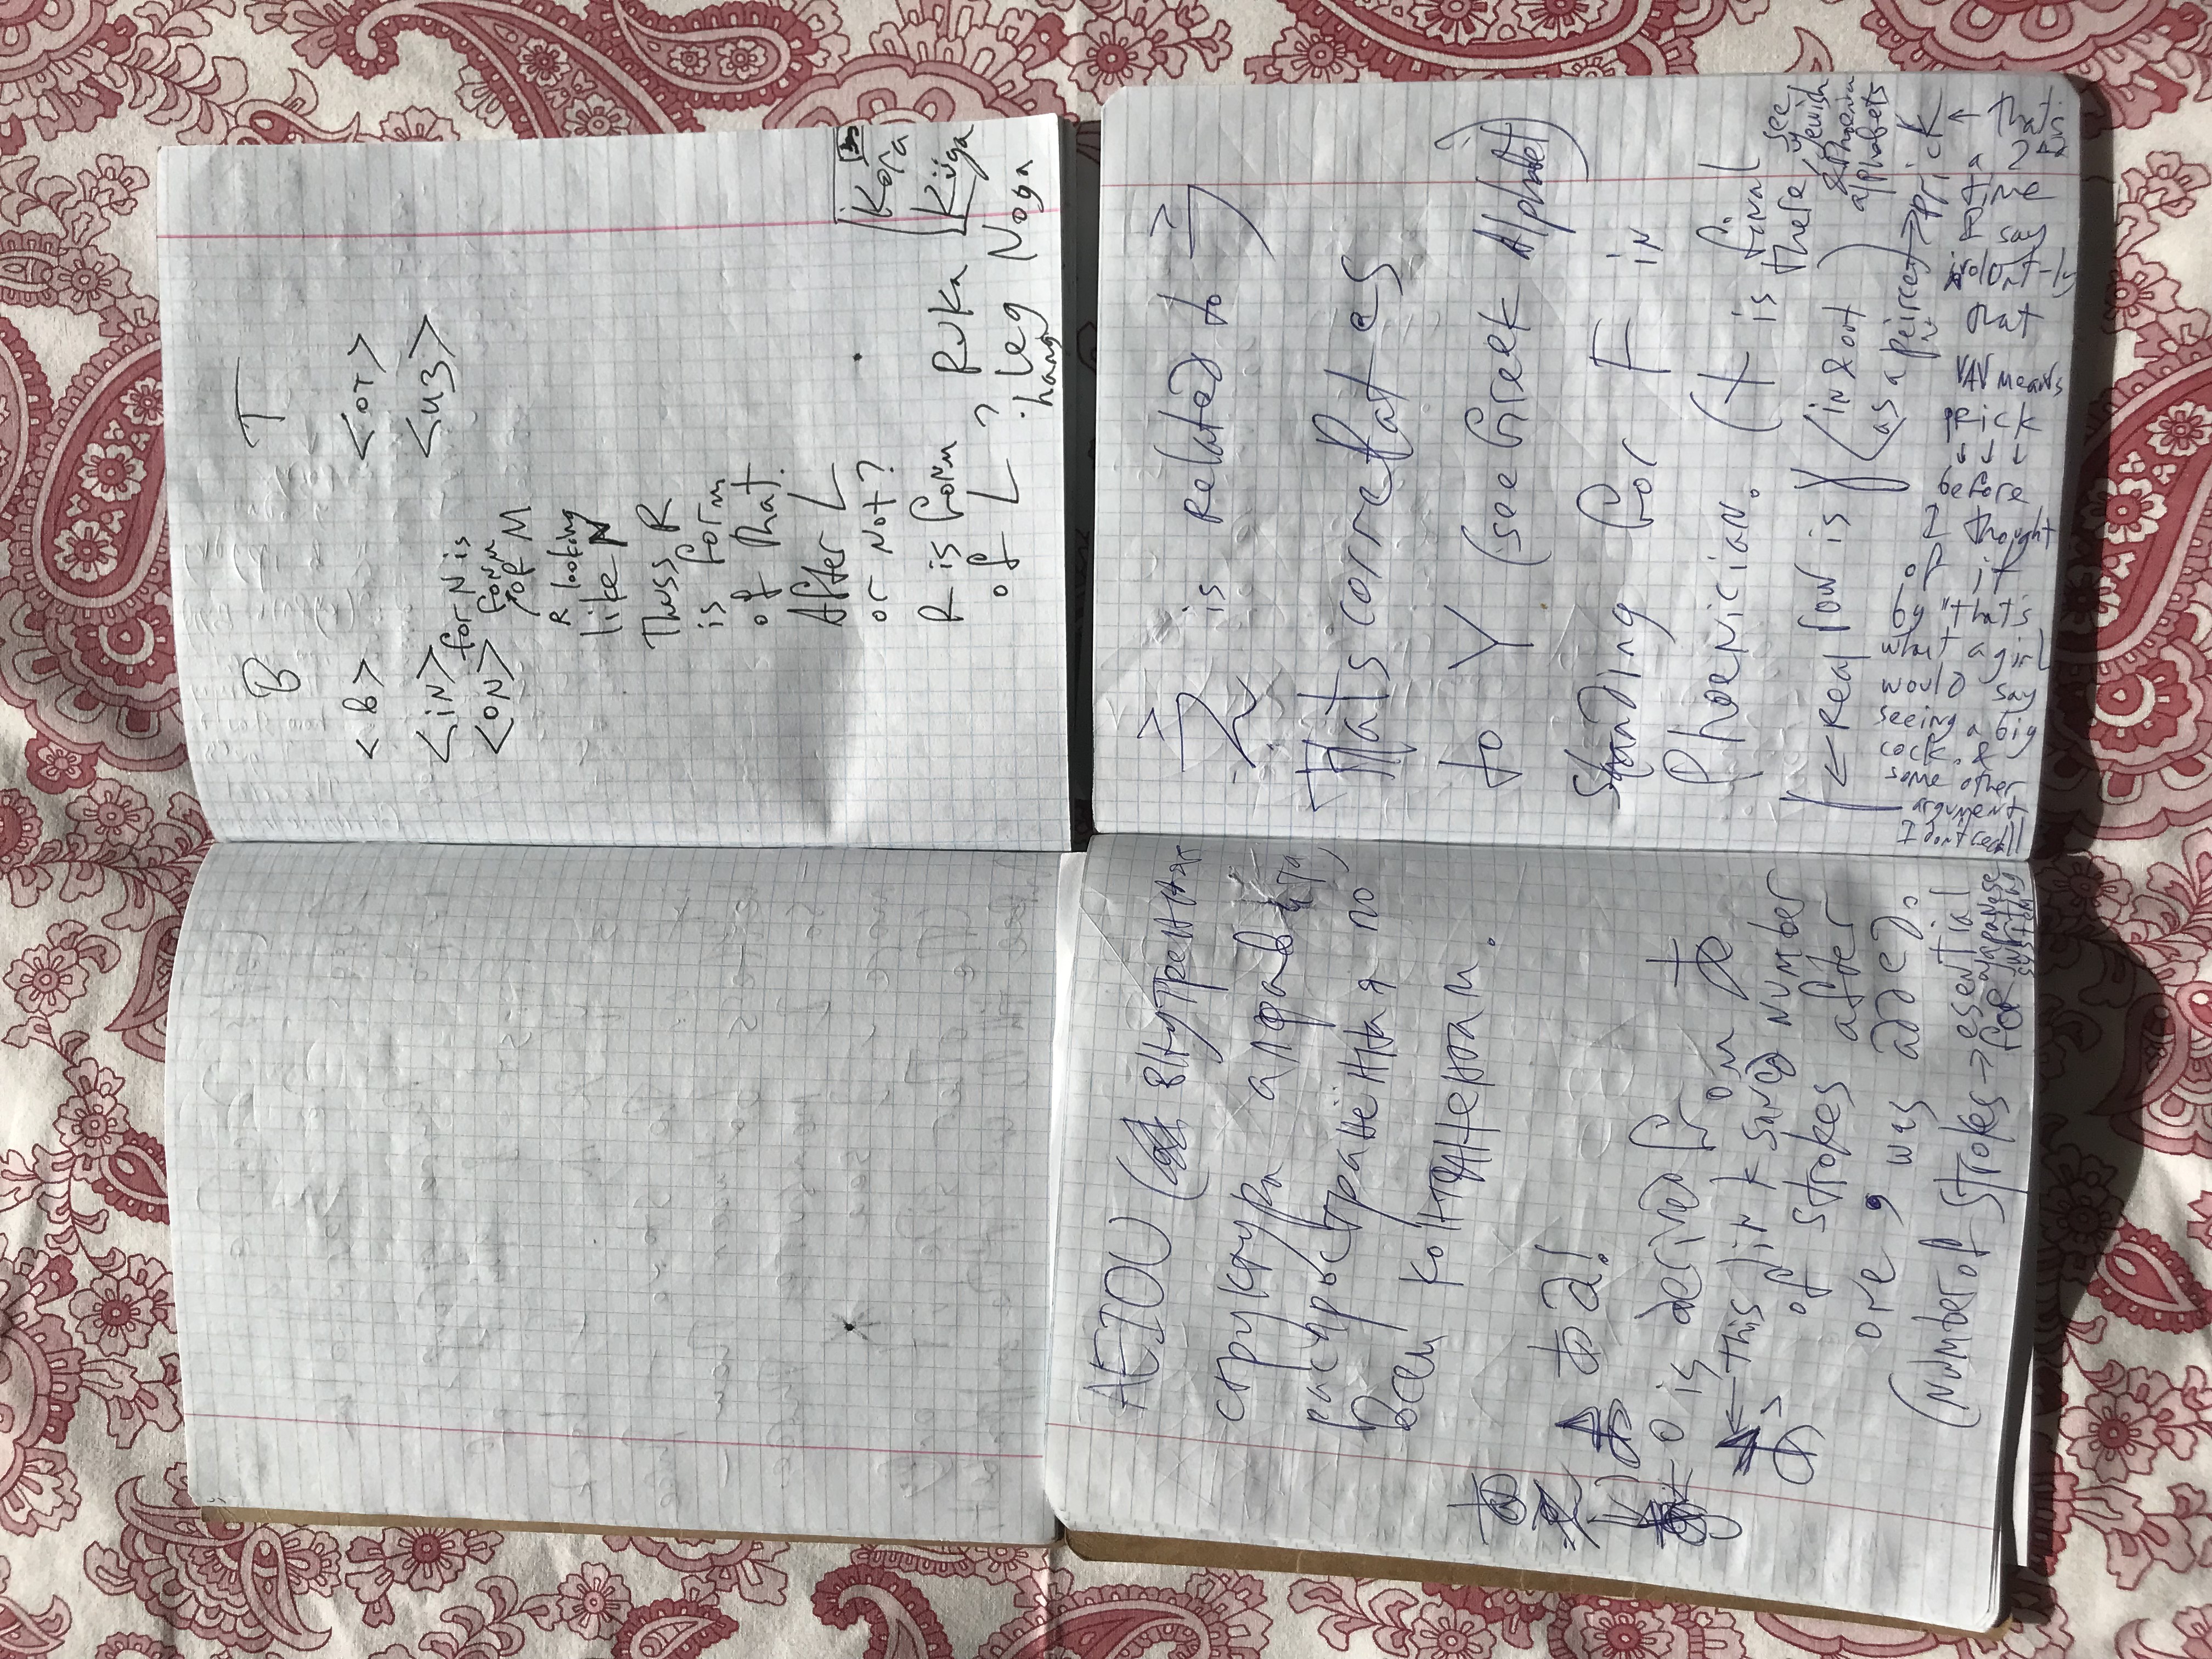 B T
<в> <от>
<iN> <из>
for N is
<ON> form
of M
R looking
like N
Thuss R
is form
of that.
After L
or Not?
R is form
of L ?
Ruka
Leg Noga
hang
Kora
Küga
AEIOU ( внутренняя
структура алфавита,
распространённая по
всем континентам.
あ
あ а!
O is derived from あ
← This link saved number
of strokes after
one , was added.
(Number of strokes → esential
FOR Japanese
writing
system
え is related to う
Thats correlates
to Y (see Greek Alphabet)
Standing for F in
Phoenician. (Y is final
there see
Jewish
& Phoenician
alphabets
← Real row is Y (in & out
as a peircer) → prick ← that's
a 2nd
time
I say
violent-ly
that
VAN means
prick
before
I thought
of it
by "that's
what a girl
would say
seeing a big
cock" &
some other
argument
I don't recall